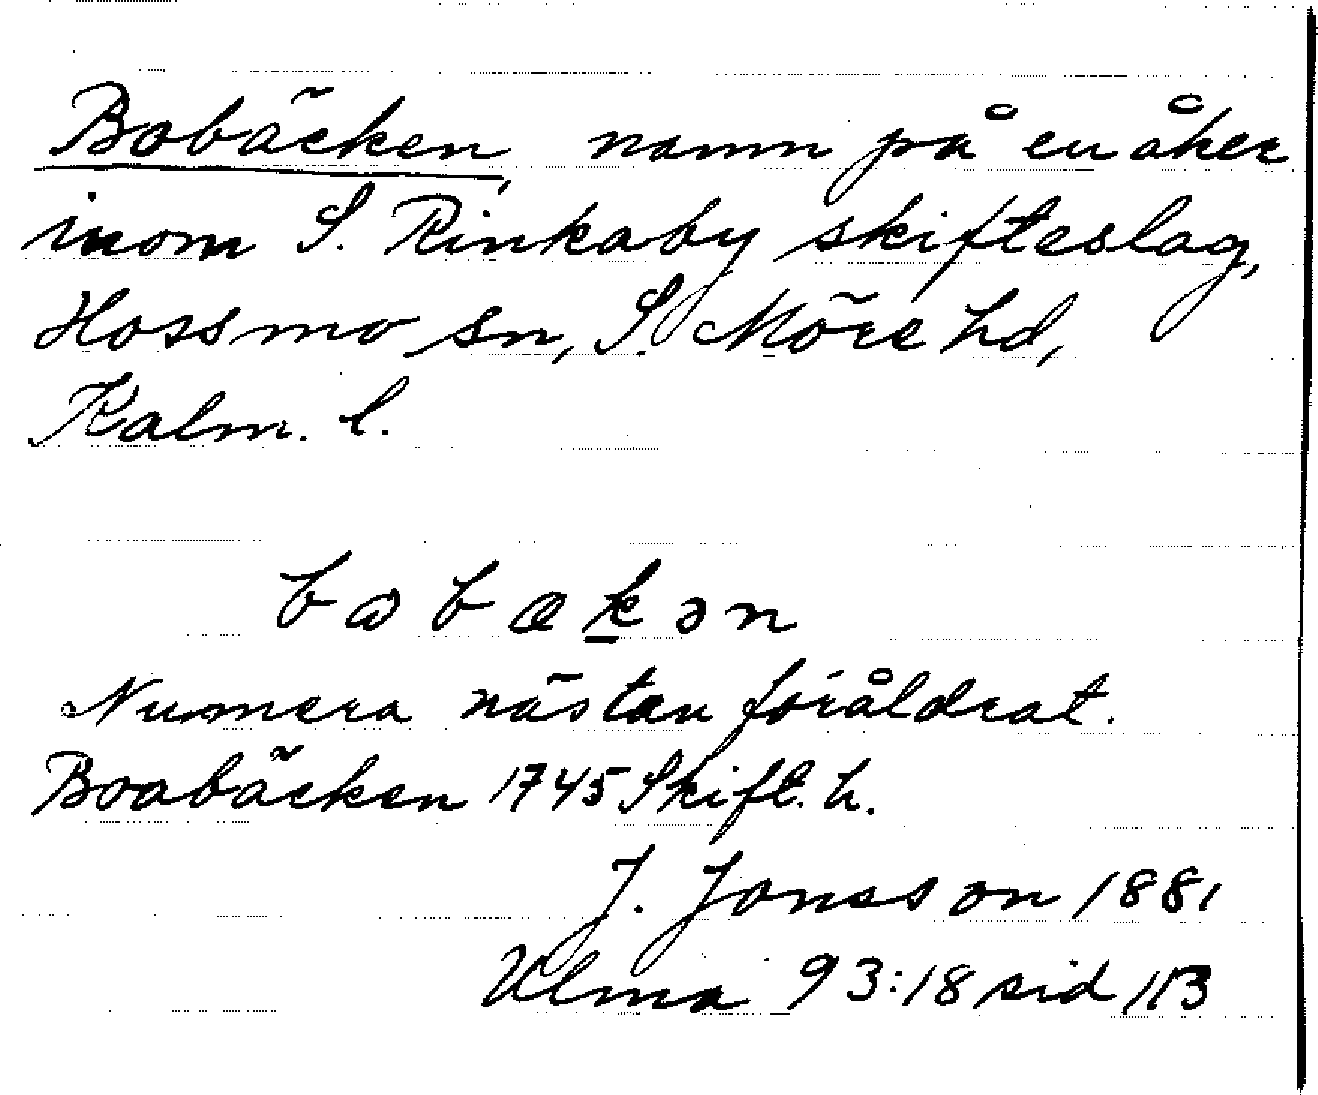 Bobäcken, namn på en åker
inom S. Rinkaby skifteslag,
Hossmo sn, S. Möre hd,
Kalm. l.
babakən
Numera nästan föråldrat.
Boabäcken 1745 Skift. h.
J. Jonsson 1881
Ulma 93:18 sid 113